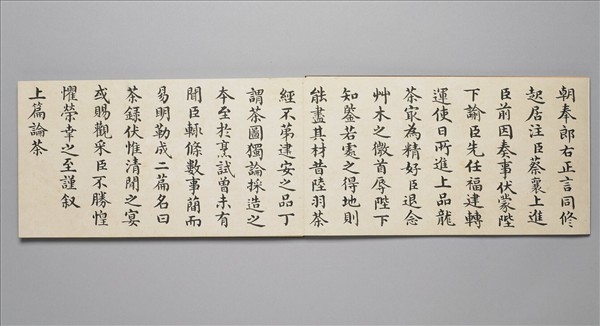 朝奉郎右正言同修
起居注臣蔡襄上進
臣前因奏事伏蒙陛
下諭臣先任福建轉
運使日所進上品龍
茶㝡為精好臣退念
艸木之微首辱陛下
知鑒若處之得地則
能盡其材昔陸羽茶
經不第建安之品丁
謂茶圖獨論採造之
本至於烹試曾未有
聞臣輒條數事簡而
易明勒成二篇名曰
茶錄伏惟清閒之宴
或賜觀采臣不勝惶
懼榮幸之至謹叙
上篇論茶